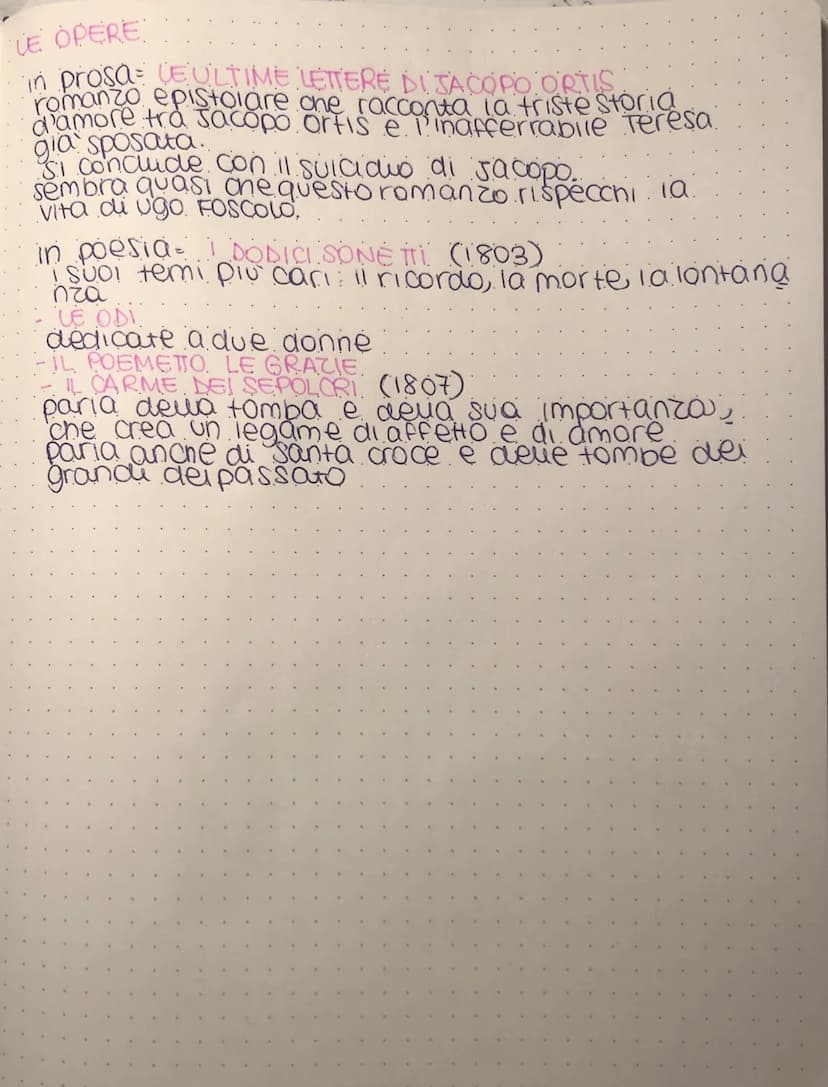 LE OPERE
in prosa= LE ULTIME LETTERE DI JACOPO ORTIS
romanzo epistolare che racconta la triste storia
d'amore tra Jacopo Ortis e l'inafferrabile Teresa
già sposata.
Si conclude con il suicidio di Jacopo.
sembra quasi che questo romanzo rispecchi la
vita di Ugo Foscolo.
in poesia= I DODICI SONETTI (1803)
i suoi temi più cari: il ricordo, la morte, la lontana
nza
- LE ODI
dedicate a due donne
- IL POEMETTO LE GRAZIE
- IL CARME DEI SEPOLCRI (1807)
parla della tomba e della sua importanza,
che crea un legame di affetto e di amore
parla anche di Santa Croce e delle tombe dei
grandi del passato